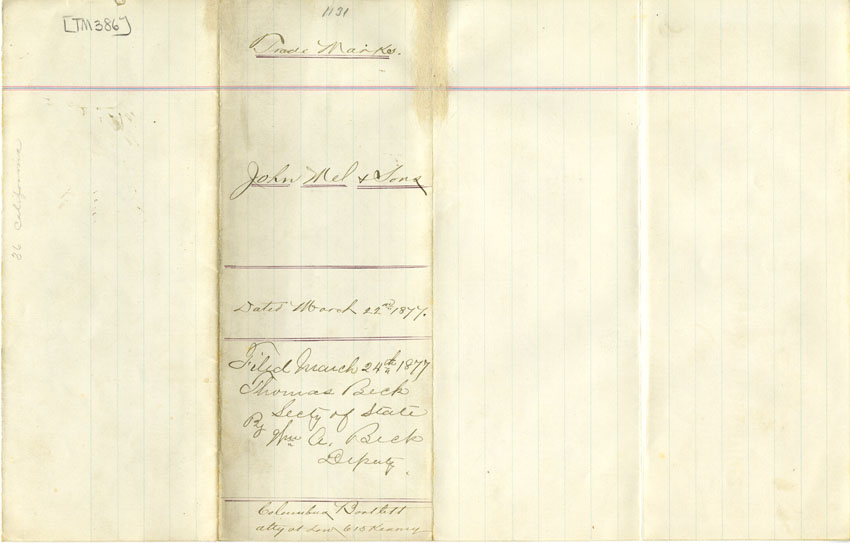 1131
[TM386]
Trade Marks.
John Mel & Sons
86 California
Dated March 22nd 1877.
Filed March 24th 1877
Thomas Beck
Secty of State
By Wm A. Beck
Deputy.
Columbus Bartlett
atty at Law 613 Kearny